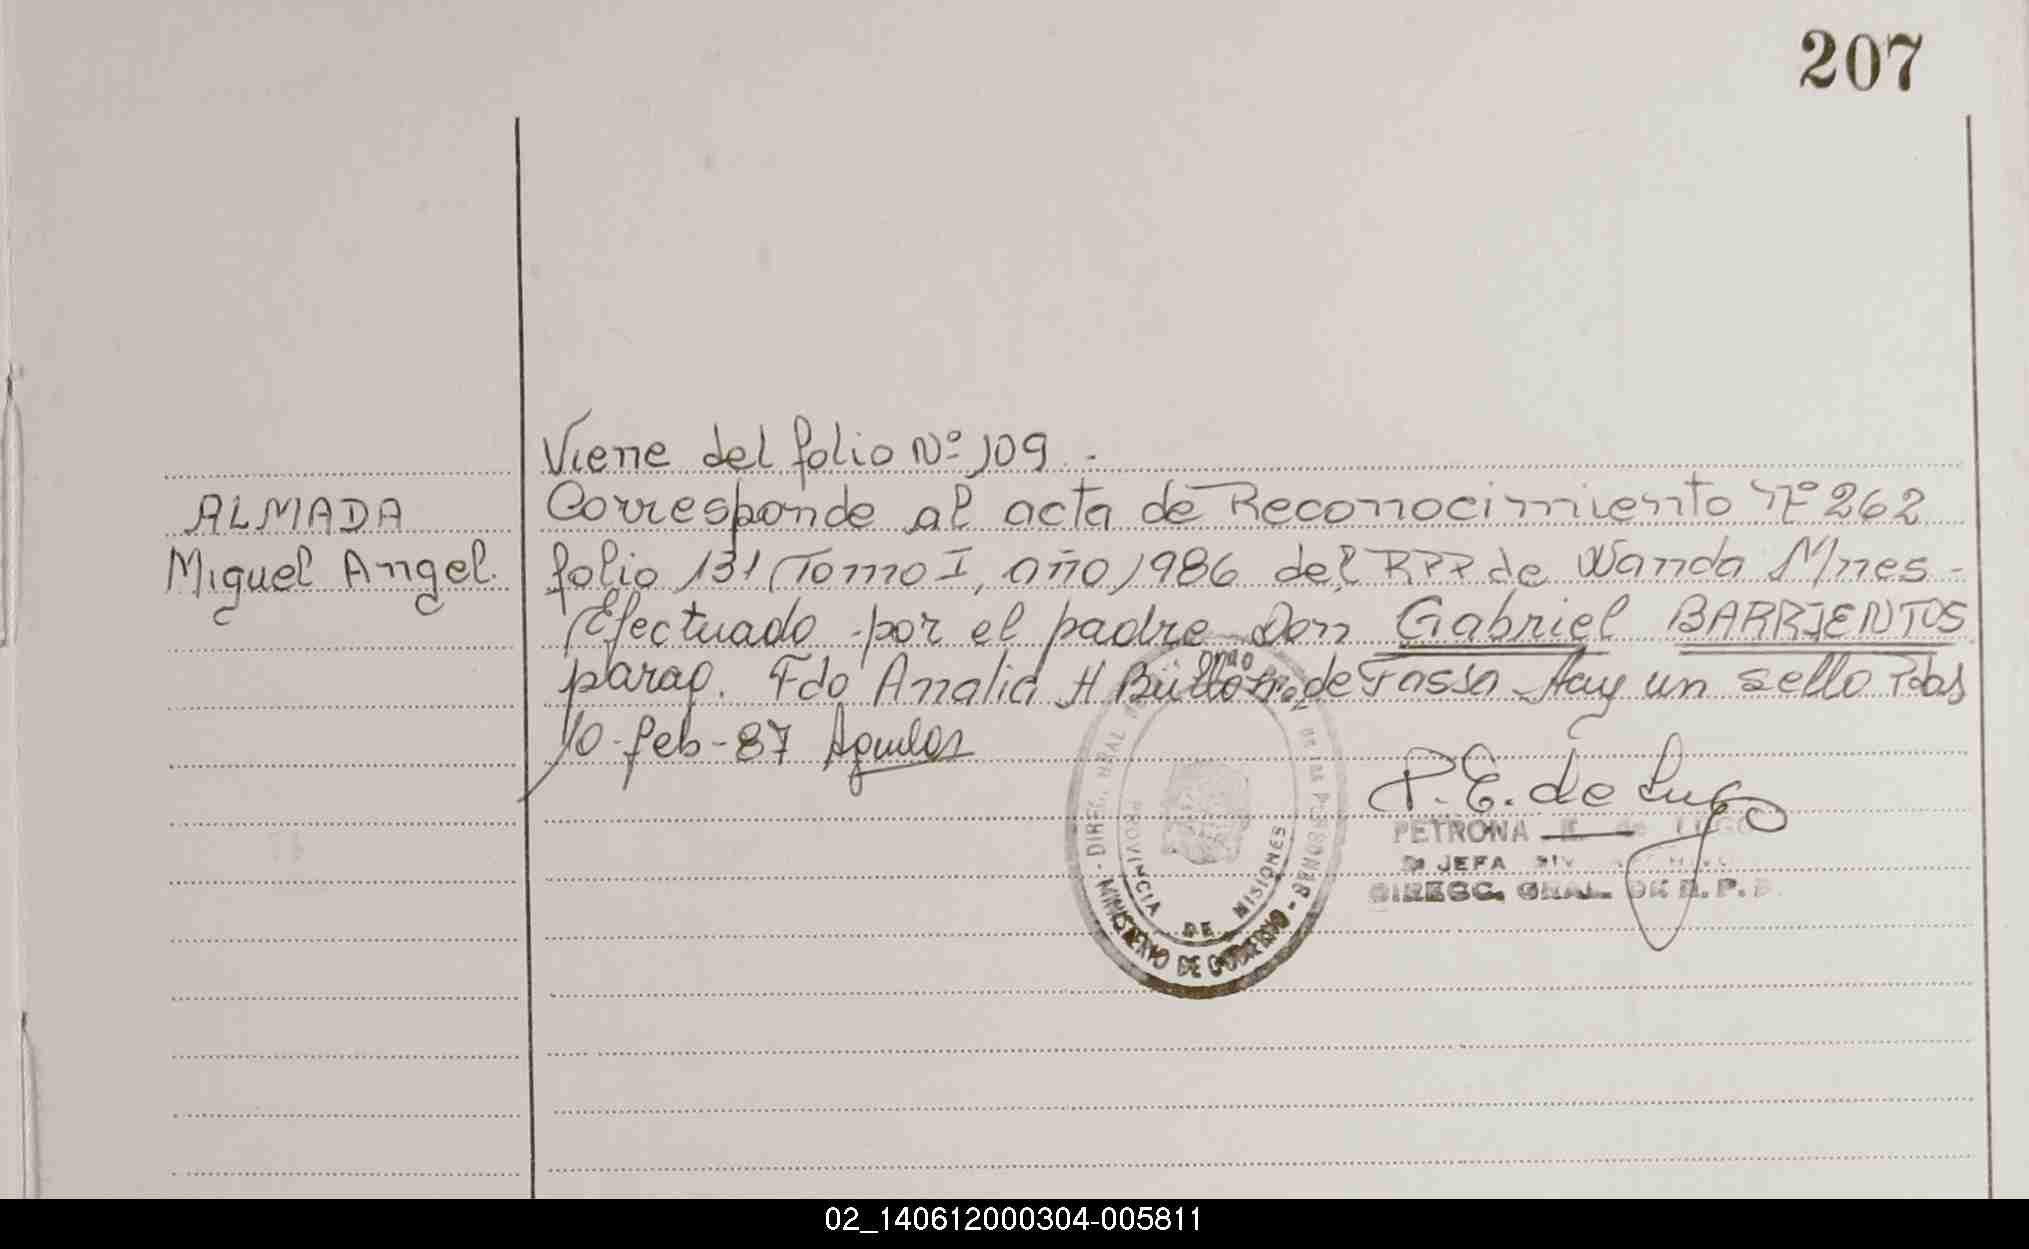 207
Viene del folio Nº 109.-
ALMADA
Miguel Angel.
Corresponde al acta de Reconocimiento Nº 262
folio 131 Tomo I, año 1986 del RPP de Wanda Mnes-
Efectuado por el padre Don Gabriel BARRIENTOS
parag. Fdo Analia H de Fassa Hay un sello Pdas
10-feb-87 Aguilar
P.E. de Lugo
PETRONA E. de LUGO
JEFA DIV
DIRECC. GRAL. DE R.P.
PROVINCIA DE MISIONES
MINISTERIO DE GOBIERNO
02_140612000304-005811